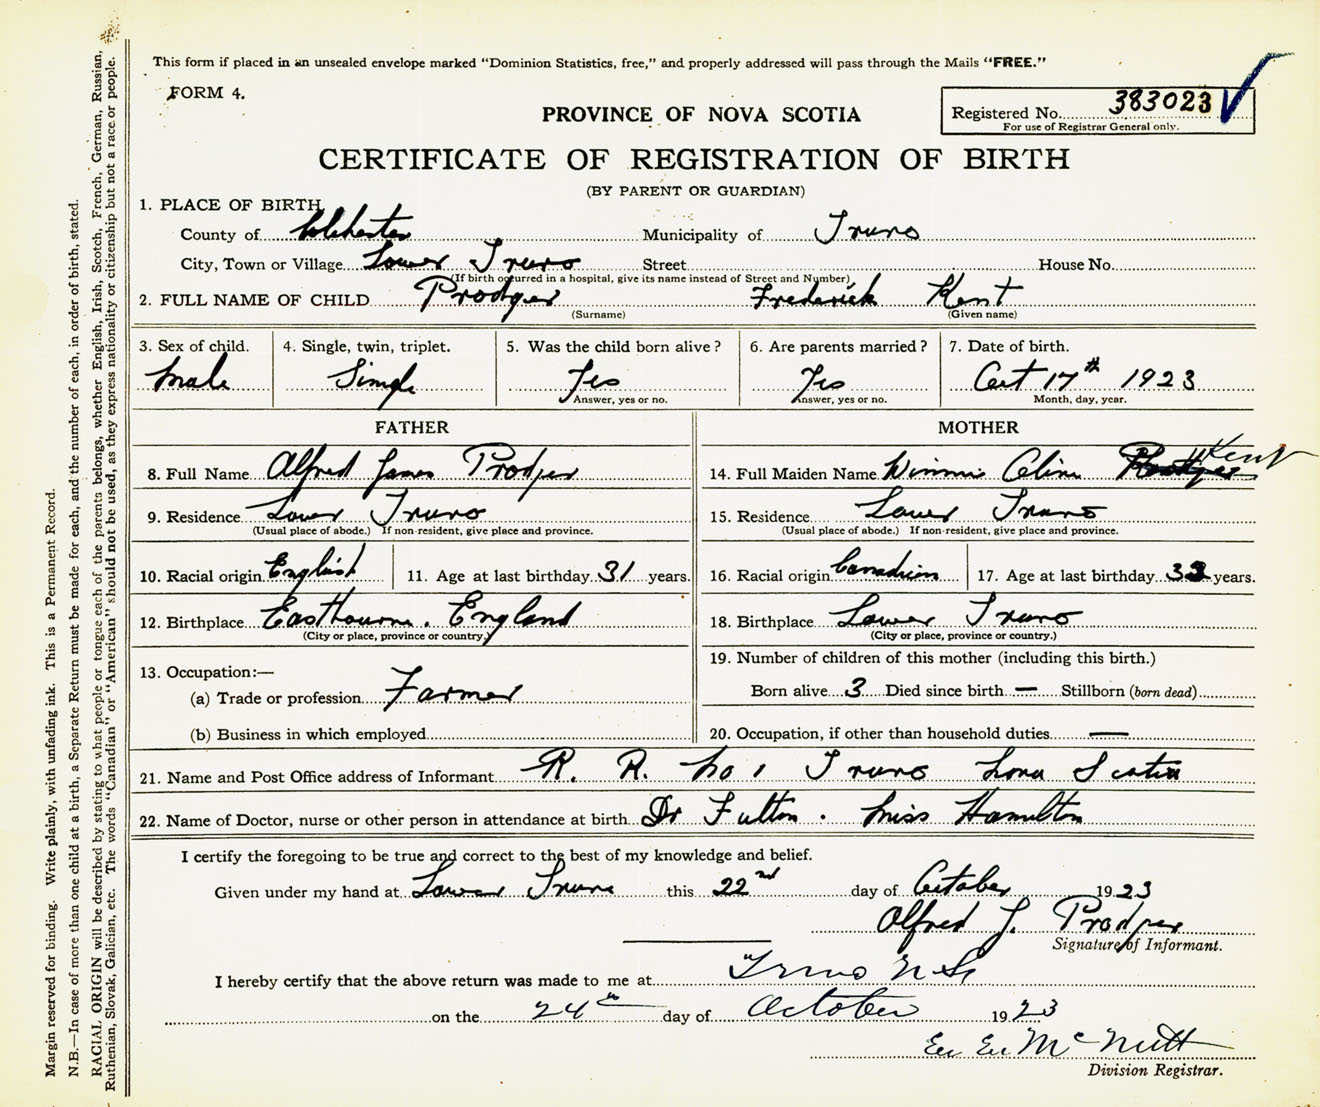 This form if placed in an unsealed envelope marked "Dominion Statistics, free," and properly addressed will pass through the Mails "FREE."
FORM 4.
Registered No. 383023
For use of Registrar General only.
PROVINCE OF NOVA SCOTIA
CERTIFICATE OF REGISTRATION OF BIRTH
(BY PARENT OR GUARDIAN)
1. PLACE OF BIRTH
County of Colchester Municipality of Truro
City, Town or Village Lower Truro Street House No.
(If birth occurred in a hospital, give its name instead of Street and Number)
2. FULL NAME OF CHILD Prodger Frederick Kent
(Surname) (Given name)
3. Sex of child. 4. Single, twin, triplet. 5. Was the child born alive? 6. Are parents married? 7. Date of birth.
Male Single Yes Yes Oct 17th 1923
Answer, yes or no. Answer, yes or no. Month, day, year.
FATHER
8. Full Name Alfred James Prodger
9. Residence Lower Truro
(Usual place of abode.) If non-resident, give place and province.
10. Racial origin English 11. Age at last birthday 31 years.
12. Birthplace Eastbourne. England
(City or place, province or country.)
13. Occupation:—
(a) Trade or profession Farmer
(b) Business in which employed
MOTHER
14. Full Maiden Name Winnie Kent
15. Residence Lower Truro
(Usual place of abode.) If non-resident, give place and province.
16. Racial origin Canadian 17. Age at last birthday years.
18. Birthplace Lower Truro
(City or place, province or country.)
19. Number of children of this mother (including this birth.)
Born alive 3 Died since birth — Stillborn (born dead)
20. Occupation, if other than household duties —
21. Name and Post Office address of Informant R. R. No 1 Truro Nova Scotia
22. Name of Doctor, nurse or other person in attendance at birth Dr Fulton. Miss Hamilton
I certify the foregoing to be true and correct to the best of my knowledge and belief.
Given under my hand at Lower Truro this 22nd day of October 1923
Alfred J. Prodger
Signature of Informant.
I hereby certify that the above return was made to me at Truro N.S.
on the 24th day of October 1923
McNutt
Division Registrar.
Margin reserved for binding. Write plainly, with unfading ink. This is a Permanent Record.
N.B.—In case of more than one child at a birth, a Separate Return must be made for each, and the number of each, in order of birth, stated.
RACIAL ORIGIN will be described by stating to what people or tongue each of the parents belongs, whether English, Irish, Scotch, French, German, Russian,
Ruthenian, Slovak, Galician, etc. The words "Canadian" or "American" should not be used, as they express nationality or citizenship but not a race or people.